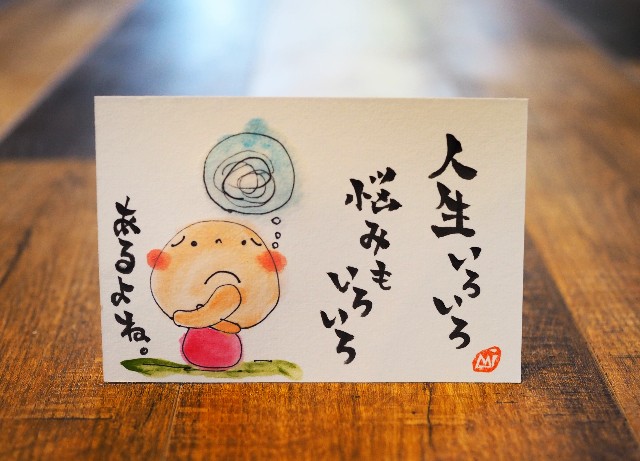 人生いろいろ
悩みも
いろいろ
あるよね。